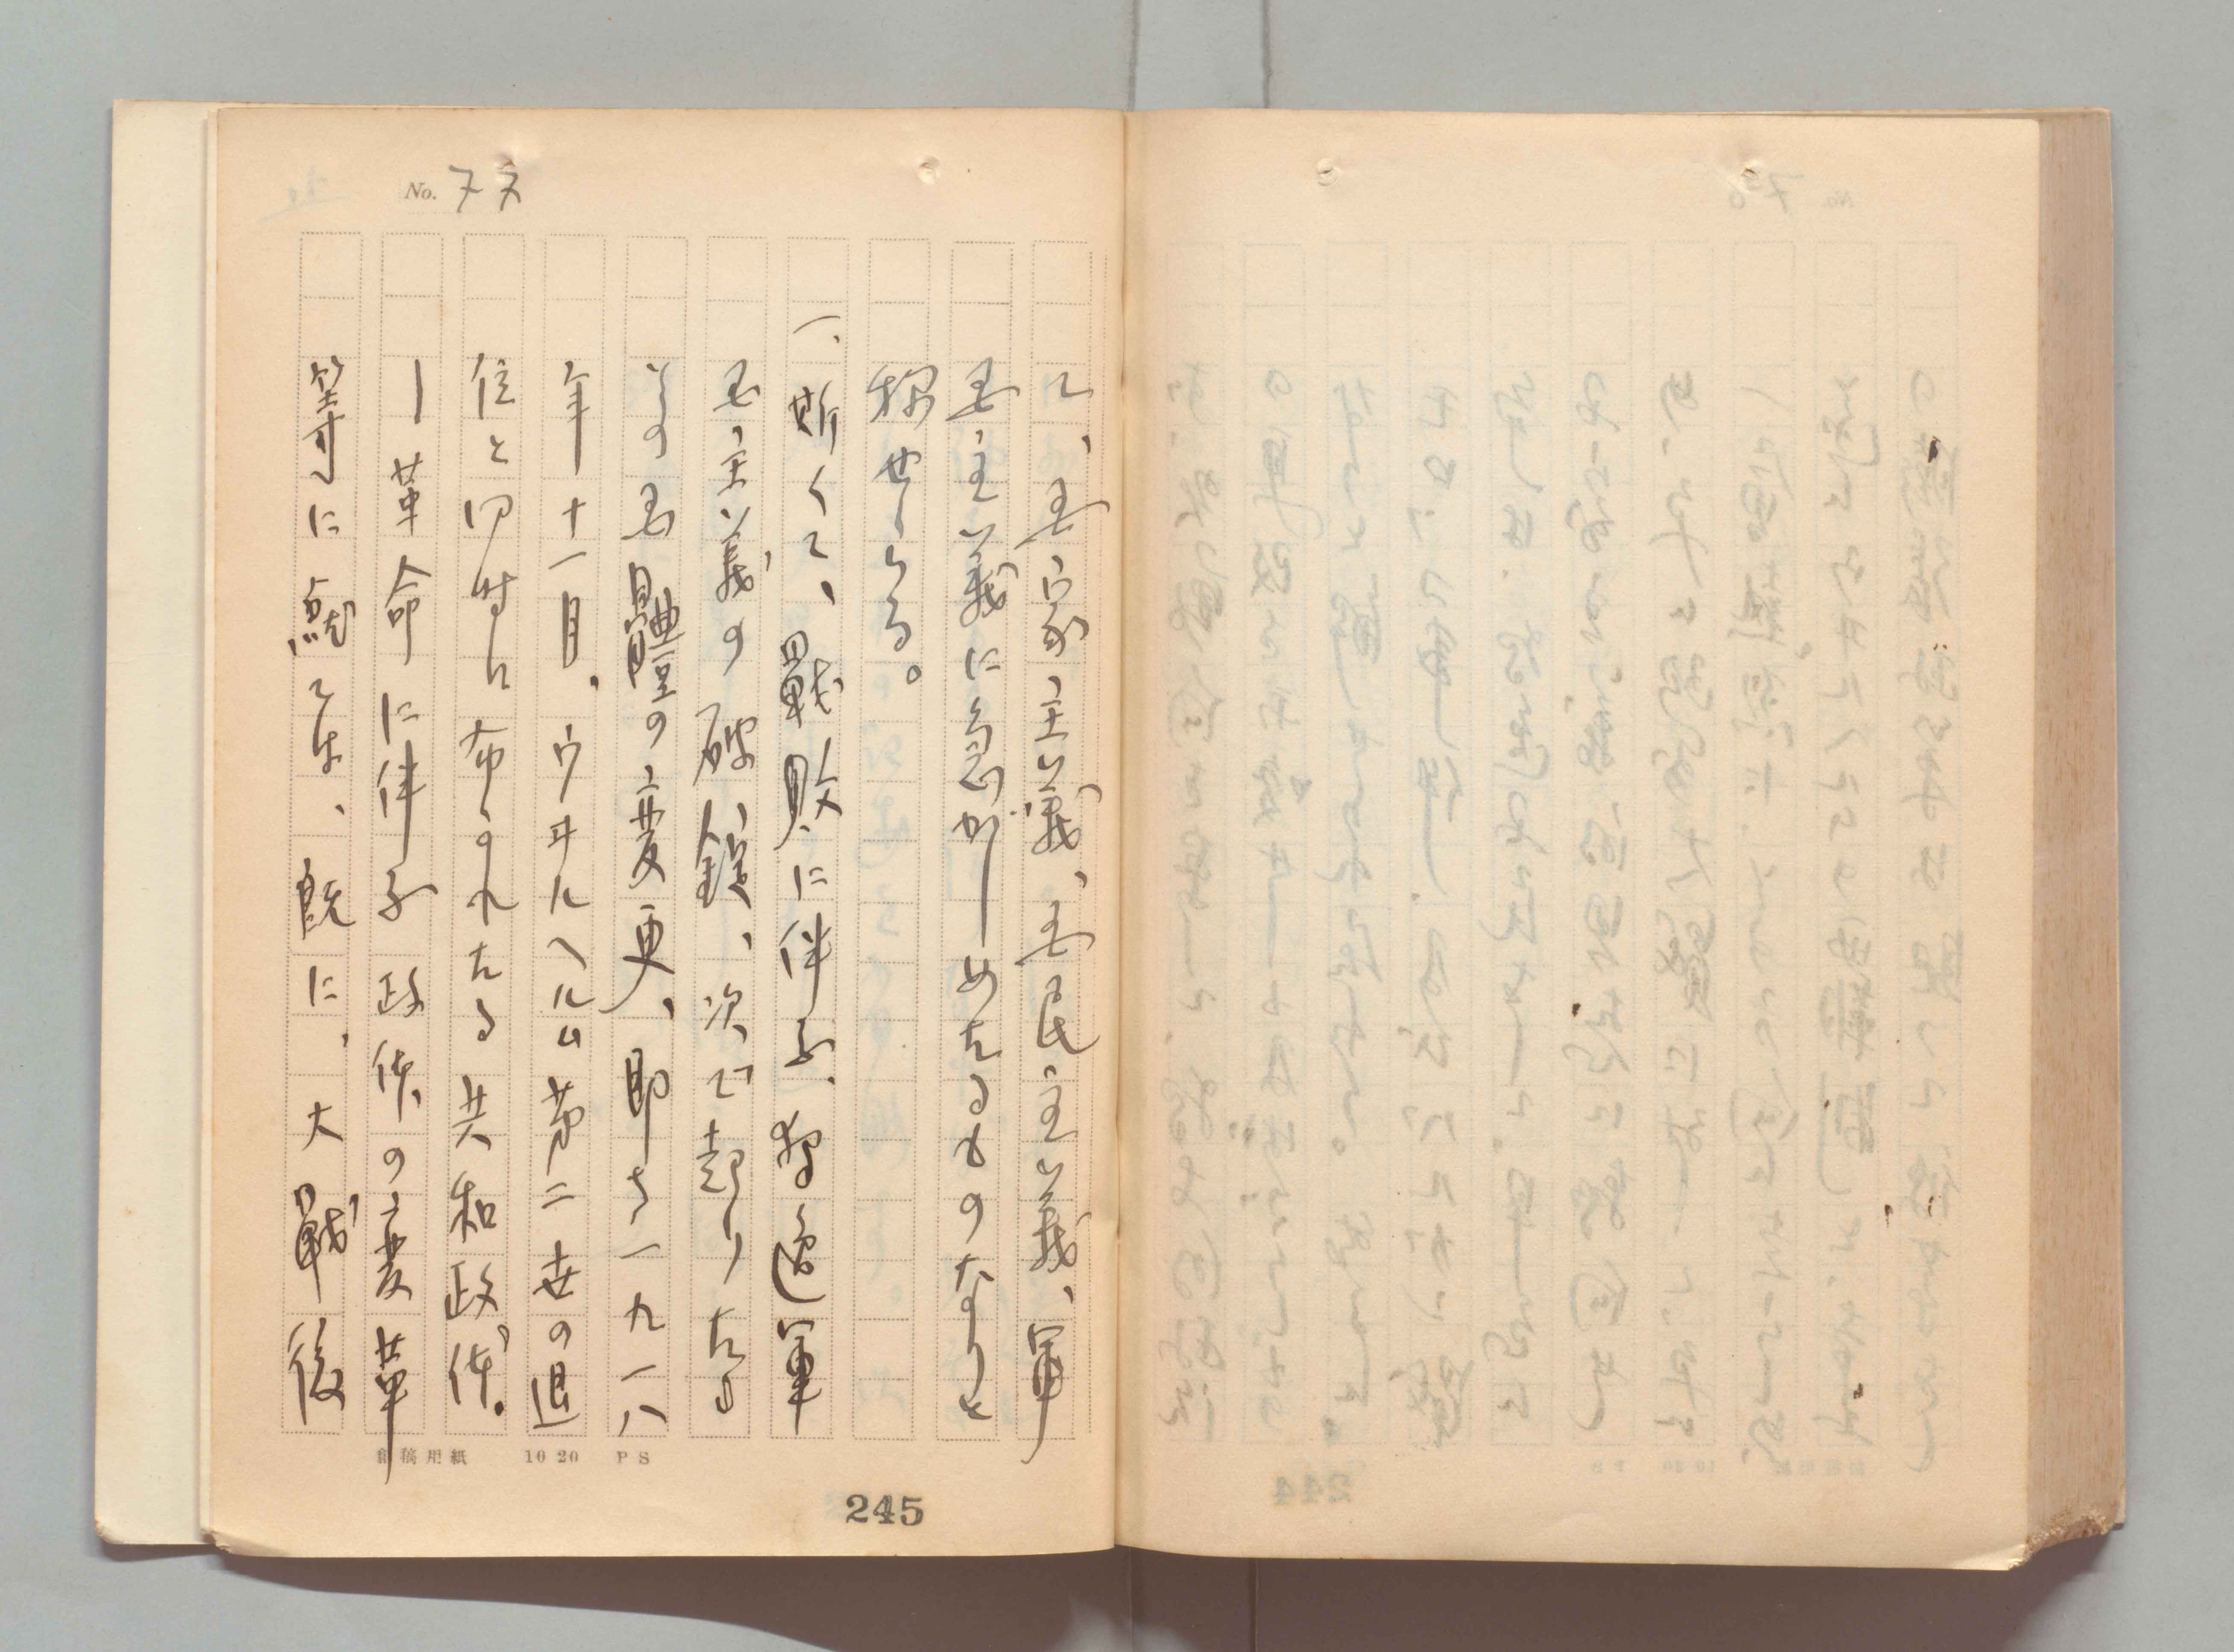 No. 77
て、国家主義、国民主義、軍
国主義に急がしめたるものなりと
称せらる。
一、斯くて、戰敗に伴ふ、独逸軍
国主義の破綻、次で起りたる
その国體の変更、即ち一九一八
年十一月、ウヰルヘルム第二世の退
位と同時に布かれたる共和政体。
ー革命に伴ふ政体の変革
等に就ては、既に、大戰後
原稿用紙 10 20 PS
245